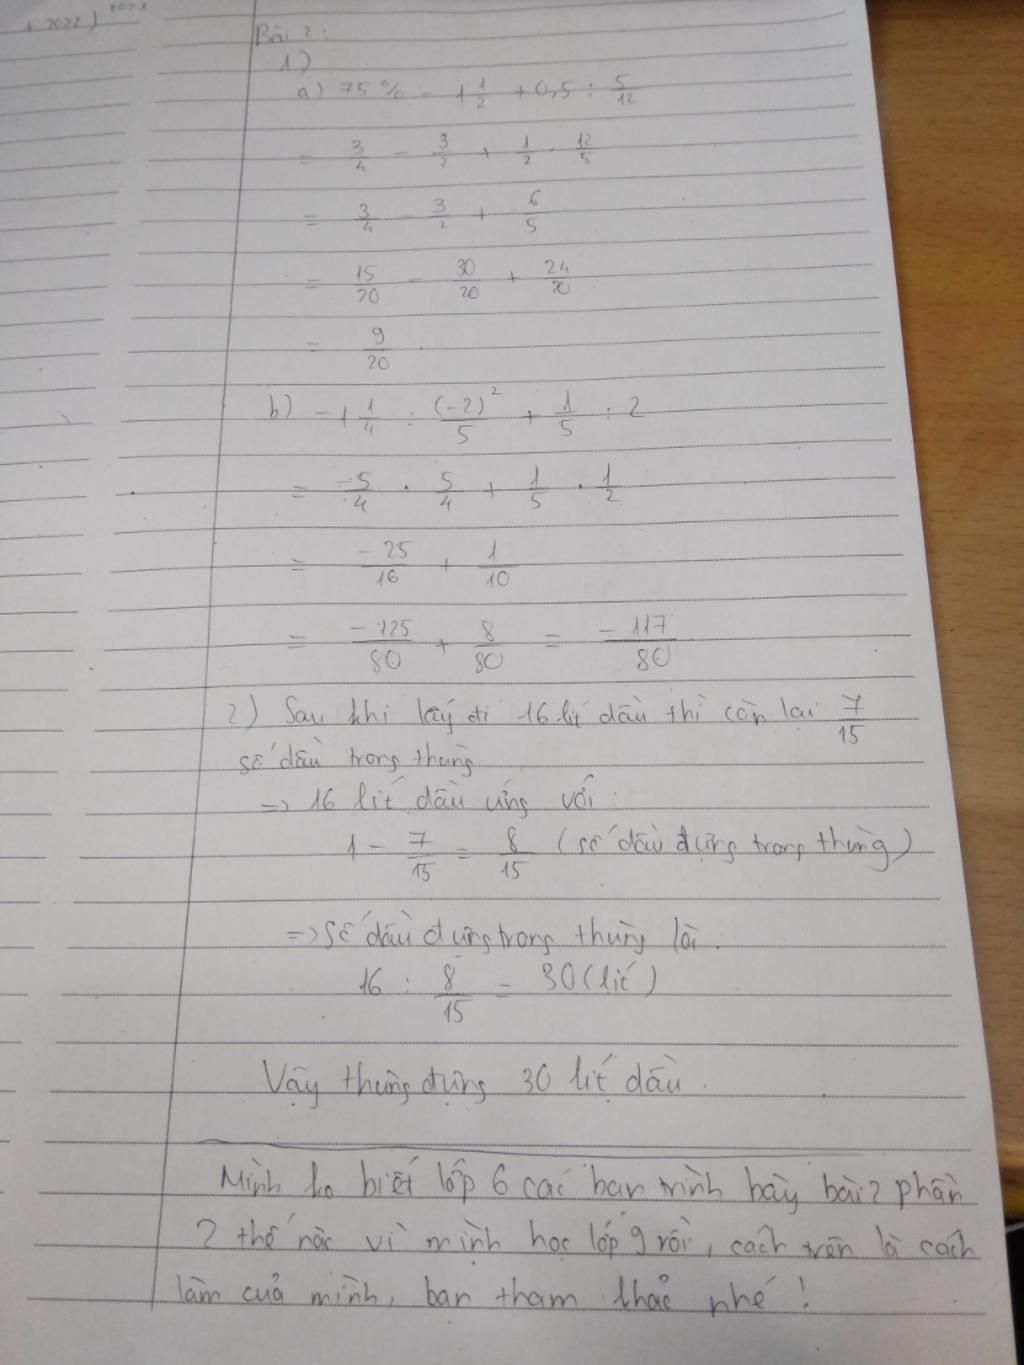 + 2022) 2021
Bài 2:
1)
a) 75% - 1 1/2 + 0,5 : 5/12
= 3/4 - 3/2 + 1/2 . 12/5
= 3/4 - 3/2 + 6/5
= 15/20 - 30/20 + 24/20
= 9/20
b) -1 1/4 : (-2)²/5 + 1/5 : 2
= -5/4 . 5/4 + 1/5 . 1/2
= -25/16 + 1/10
= -125/80 + 8/80 = -117/80
2) Sau khi lấy đi 16 lít dầu thì còn lại 7/15
số dầu trong thùng
=> 16 lít dầu ứng với:
1 - 7/15 = 8/15 (số dầu đựng trong thùng)
=> Số dầu đựng trong thùng là:
16 : 8/15 = 30 (lít)
Vậy thùng đựng 30 lít dầu.
Mình ko biết lớp 6 các bạn trình bày bài 2 phần
2 thế nào vì mình học lớp 9 rồi, cách trên là cách
làm của mình, bạn tham khảo nhé!